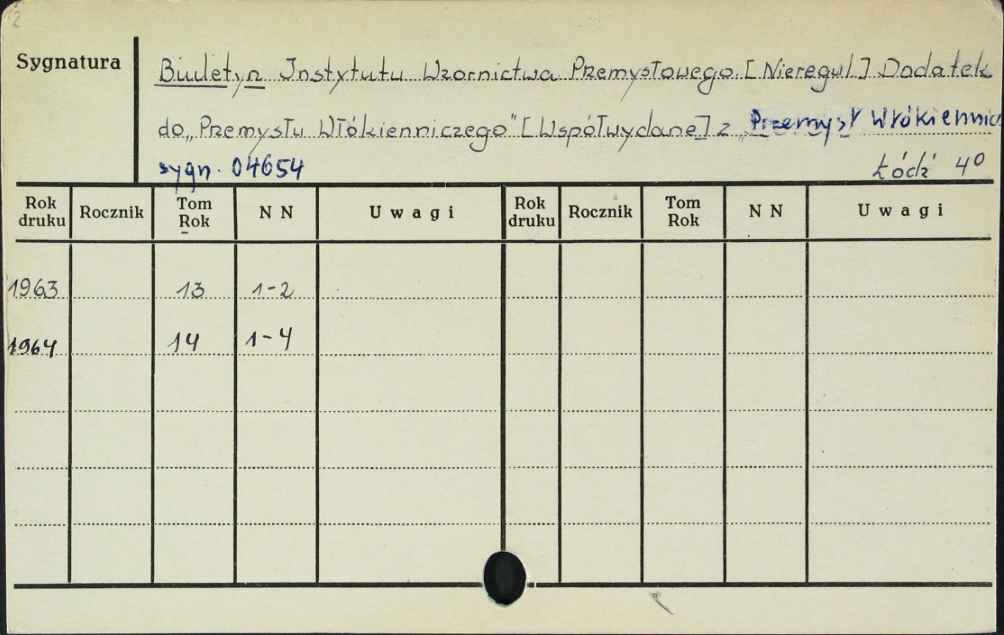 2
Sygnatura
Biuletyn Instytutu Wzornictwa Przemysłowego. [Nieregul] Dodatek
do „Przemysłu Włókienniczego" [Współwydane] z „Przemysł Włókiennic
sygn. 04654
Łódź 4°
Rok druku Rocznik Tom Rok N N Uwagi Rok druku Rocznik Tom Rok N N Uwagi
1963 13 1-2
1964 14 1-4